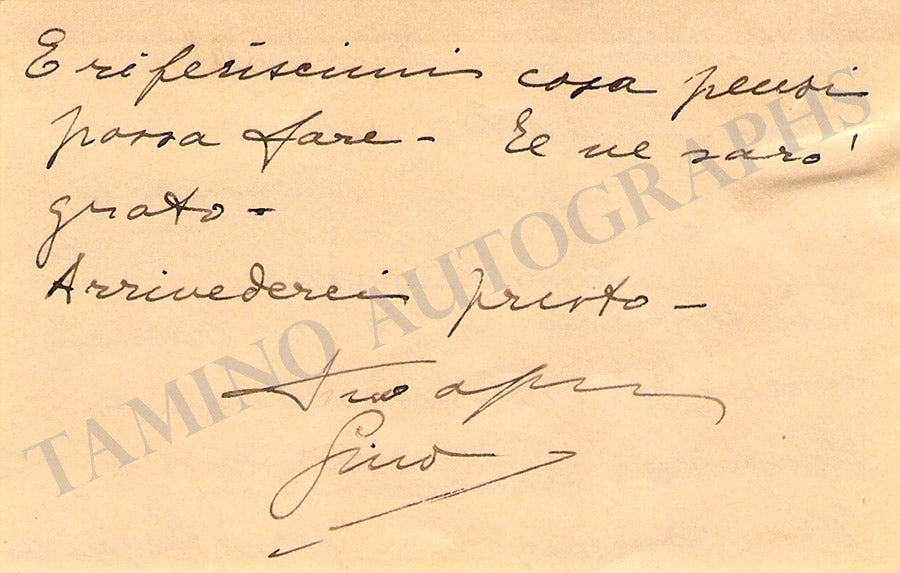 E riferiscimi cosa pensi
possa fare - Te ne saro'
grato -
Arrivederci presto -
Tuo
Gino
TAMINO AUTOGRAPHS